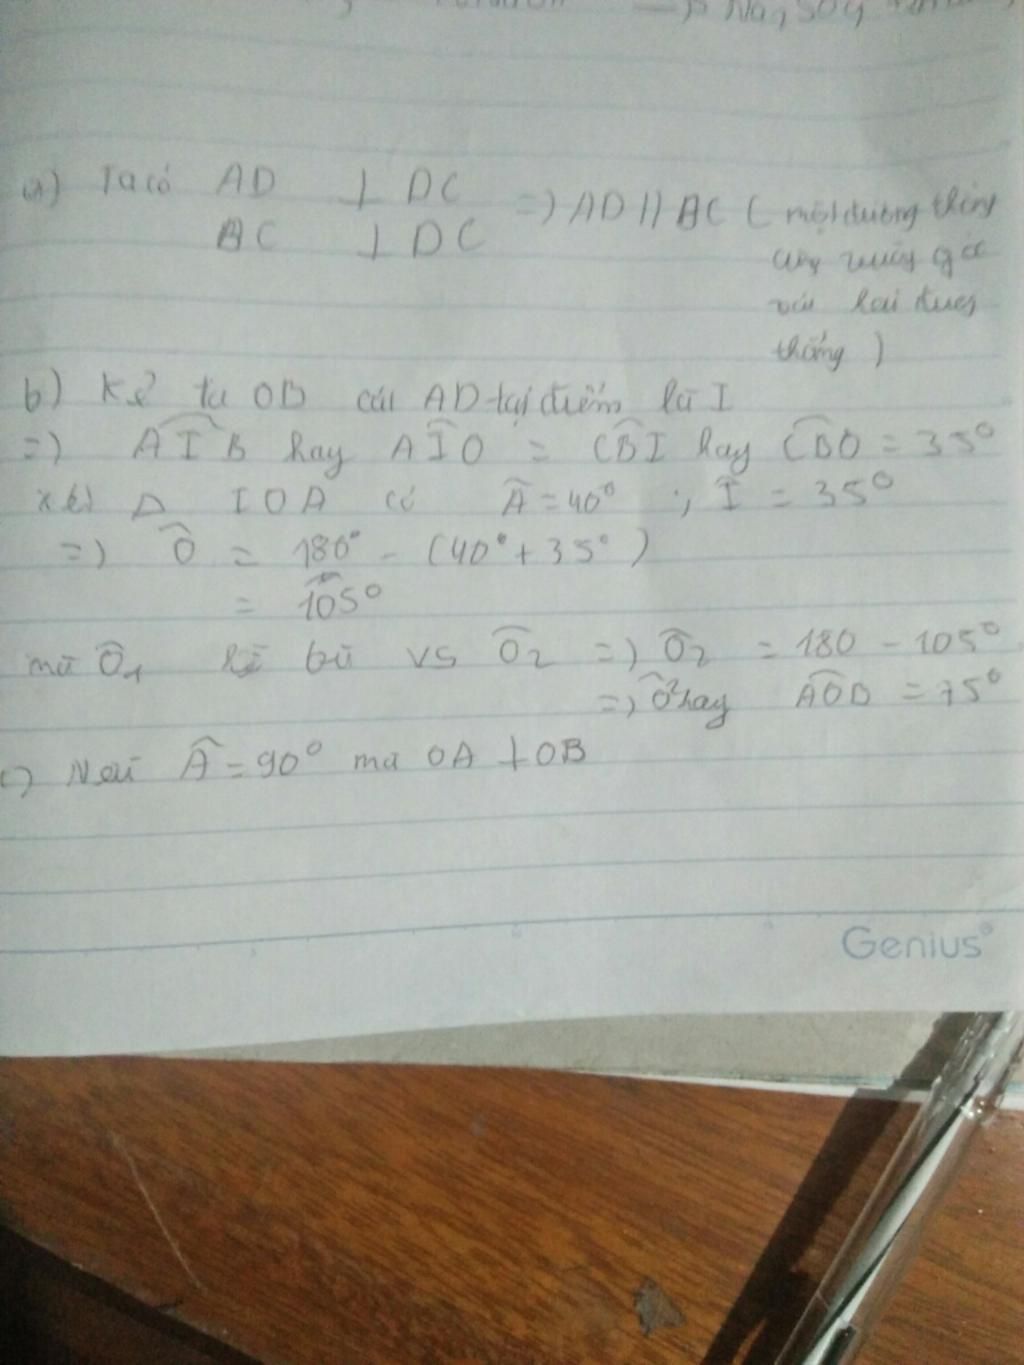 a) Ta có AD ⊥ DC
BC ⊥ DC
=) AD // BC ( một đường thẳng
cùng vuông góc
với hai đường
thẳng )
b) Kẻ tia OB cắt AD tại điểm là I
=) AIB hay AIO = CBI hay CBO = 35°
xét Δ IOA có Â = 40° ; Î = 35°
=) Ô = 180° - (40° + 35°)
= 105°
mà Ô1 kề bù vs Ô2 =) Ô2 = 180 - 105°
=) Ô2 hay AOB = 75°
c) Nếu Â = 90° mà OA ⊥ OB
Genius